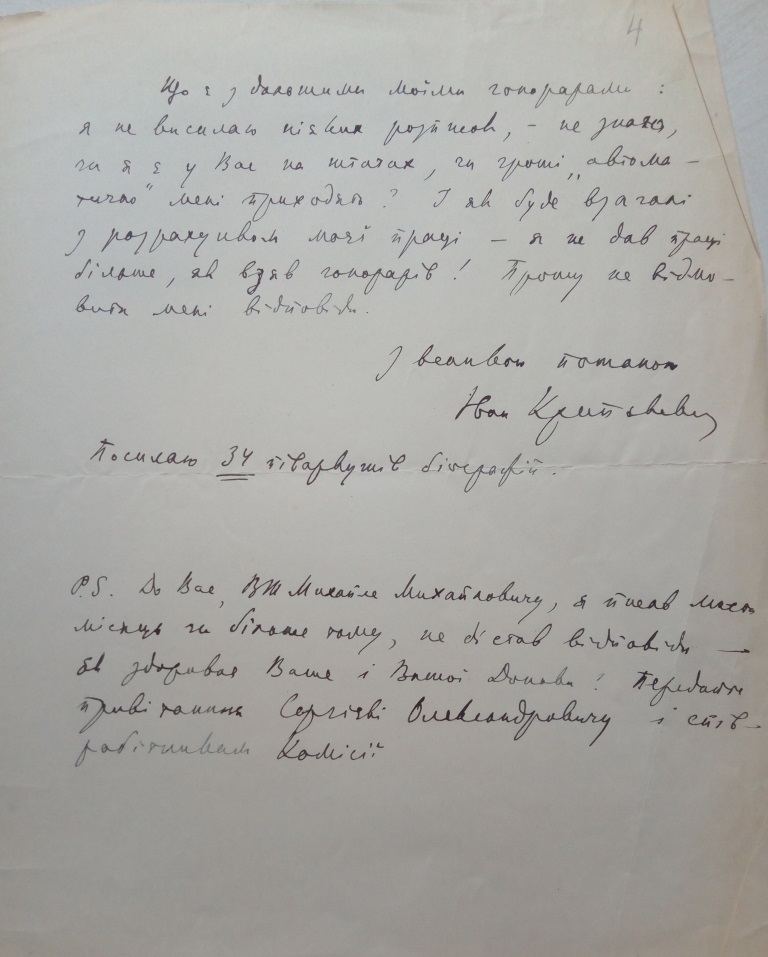 4
Що є з дальшими моїми гонорарами :
я не висилаю ніяких розписок, – не знаю,
чи я є у Вас на штатах, чи гроші „автома–
тично" мені приходять? І як буде взагалі
з розрахунком моєї праці – я не дав праці
більше, як взяв гонорарів! Прошу не відмо–
вити мені відповіди.
З великою пошаною
Іван Крипякевич
Посилаю 34 піваркушів біографій.
P.S. До Вас, ВШ Михайле Михайловичу, я писав
місяць чи більше тому, не дістав відповіди –
як здоровля Ваше і Вашої Доньки? Передайте
привітання Сергієві Олександровичу і спів–
робітникам Комісії